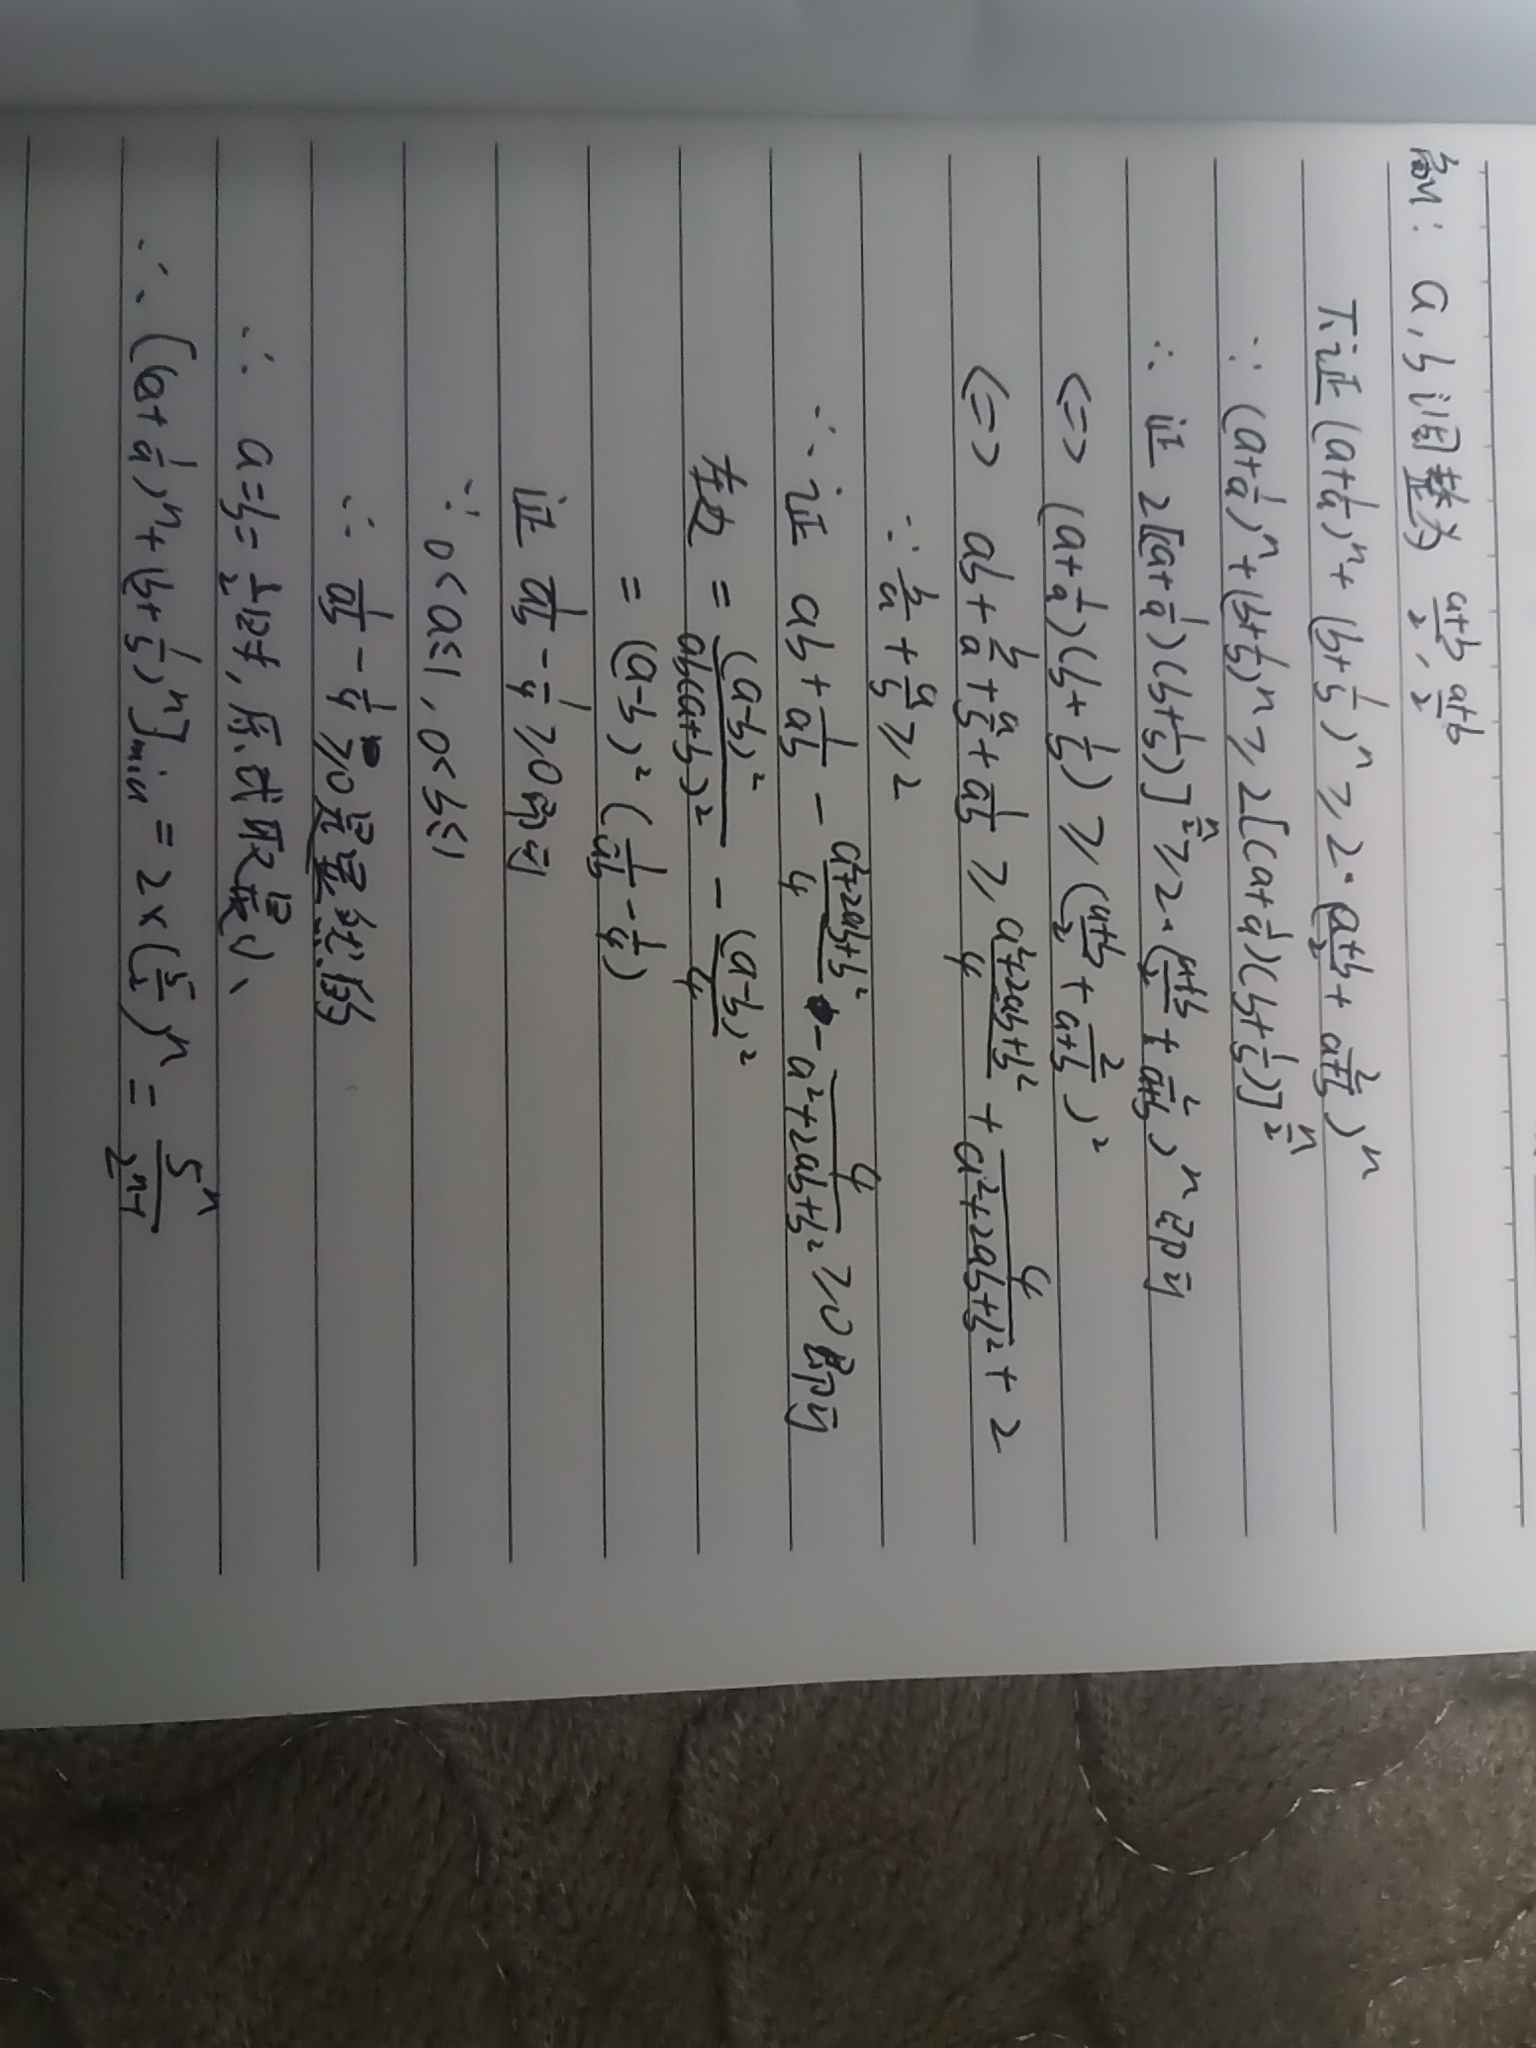 解: a,b调整为 \frac{a+b}{2}, \frac{a+b}{2}
下证 (a+\frac{1}{a})^n + (b+\frac{1}{b})^n ≥ 2·(\frac{a+b}{2}+\frac{2}{a+b})^n
∵ (a+\frac{1}{a})^n + (b+\frac{1}{b})^n ≥ 2[(a+\frac{1}{a})(b+\frac{1}{b})]^{\frac{n}{2}}
∴ 证 2[(a+\frac{1}{a})(b+\frac{1}{b})]^{\frac{n}{2}} ≥ 2·(\frac{a+b}{2}+\frac{2}{a+b})^n 即可
<=> (a+\frac{1}{a})(b+\frac{1}{b}) ≥ (\frac{a+b}{2}+\frac{2}{a+b})^2
<=> ab+\frac{b}{a}+\frac{a}{b}+\frac{1}{ab} ≥ \frac{a^2+2ab+b^2}{4}+\frac{4}{a^2+2ab+b^2}+2
∵ \frac{b}{a}+\frac{a}{b} ≥ 2
∴ 证 ab+\frac{1}{ab} - \frac{a^2+2ab+b^2}{4} - \frac{4}{a^2+2ab+b^2} ≥ 0 即可
左边 = \frac{(a-b)^2}{ab(a+b)^2} - \frac{(a-b)^2}{4}
= (a-b)^2(\frac{1}{ab}-\frac{1}{4})
证 \frac{1}{ab}-\frac{1}{4} ≥ 0 即可
∵ 0<a≤1, 0<b≤1
∴ \frac{1}{ab}-\frac{1}{4} ≥ 0 是显然的
∴ a=b=\frac{1}{2}时, 原式取最小
∴ [(a+\frac{1}{a})^n+(b+\frac{1}{b})^n]_{min} = 2×(\frac{5}{2})^n = \frac{5^n}{2^{n-1}}